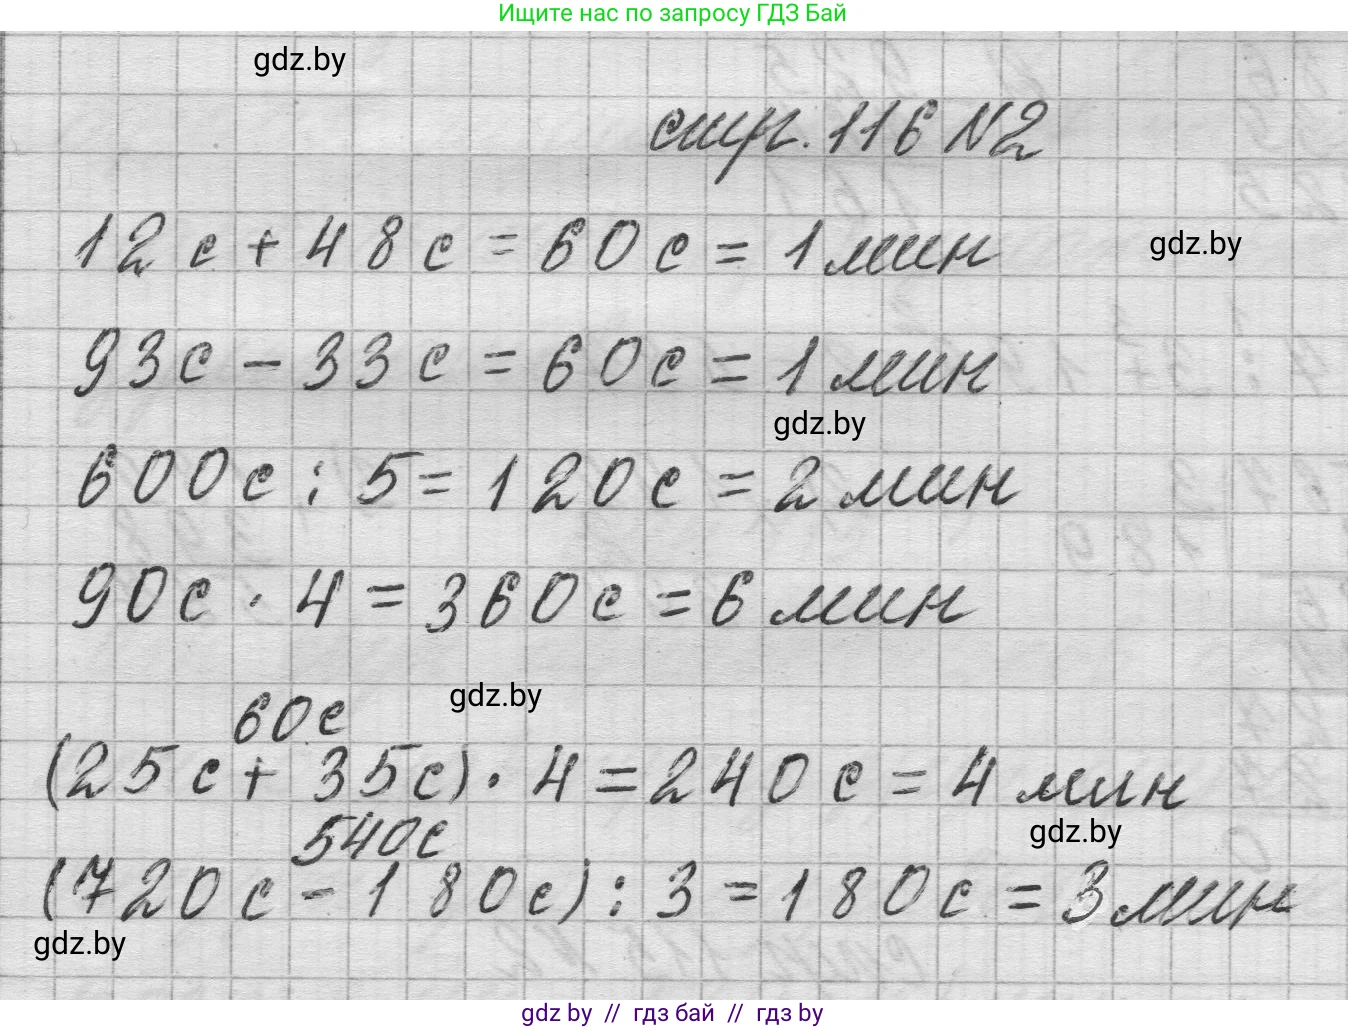 Ищите нас по запросу ГДЗ Бай
gdz.by
стр. 116 N2
12 с + 48 с = 60 с = 1 мин
gdz.by
93 с - 33 с = 60 с = 1 мин
gdz.by
600 с : 5 = 120 с = 2 мин
90 с · 4 = 360 с = 6 мин
gdz.by
60 с
(25 с + 35 с) · 4 = 240 с = 4 мин
gdz.by
540 с
(720 с - 180 с) : 3 = 180 с = 3 мин
gdz.by
gdz by // гдз бай // гдз by